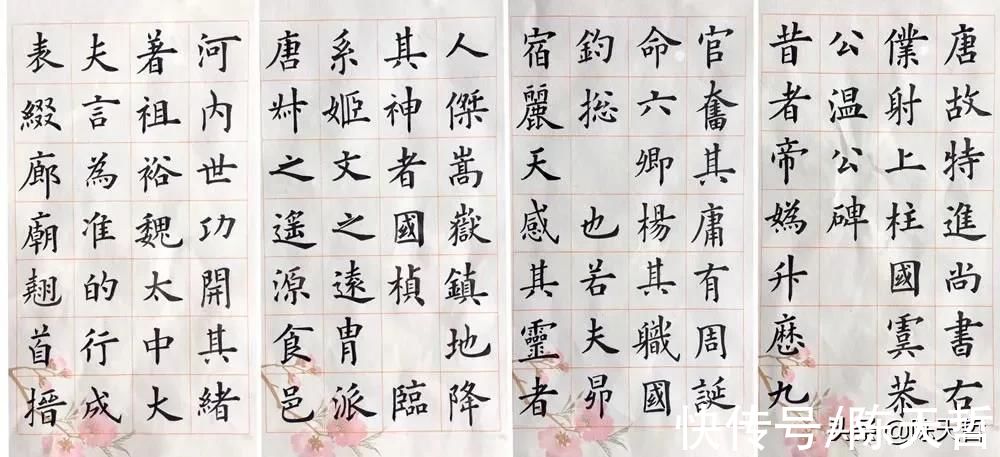 唐故特進尚書右
僕射上柱國虞恭
公温公碑
昔者帝媯升歷九
官奮其庸有周誕
命六卿楊其職國
鈞捴 也若夫昴
宿麗天感其靈者
人傑嵩嶽鎮地降
其神者國楨 臨
系姬文之遠胄派
唐叔之遥源食邑
河内世功開其緒
著祖裕魏太中大
夫言為准的行成
表綴廊廟翹首搢
快传号/陈天哲
头条 @陈天哲